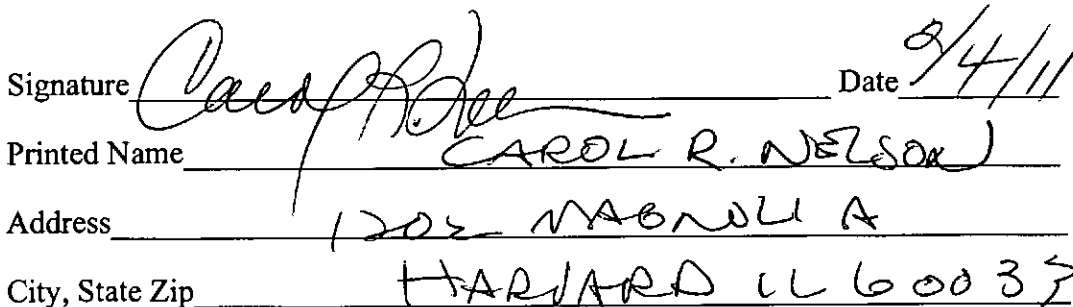 Signature Carol R. Date 2/4/11
Printed Name CAROL R. NELSON
Address 1202 MAGNOLIA
City, State Zip HARVARD IL 60033